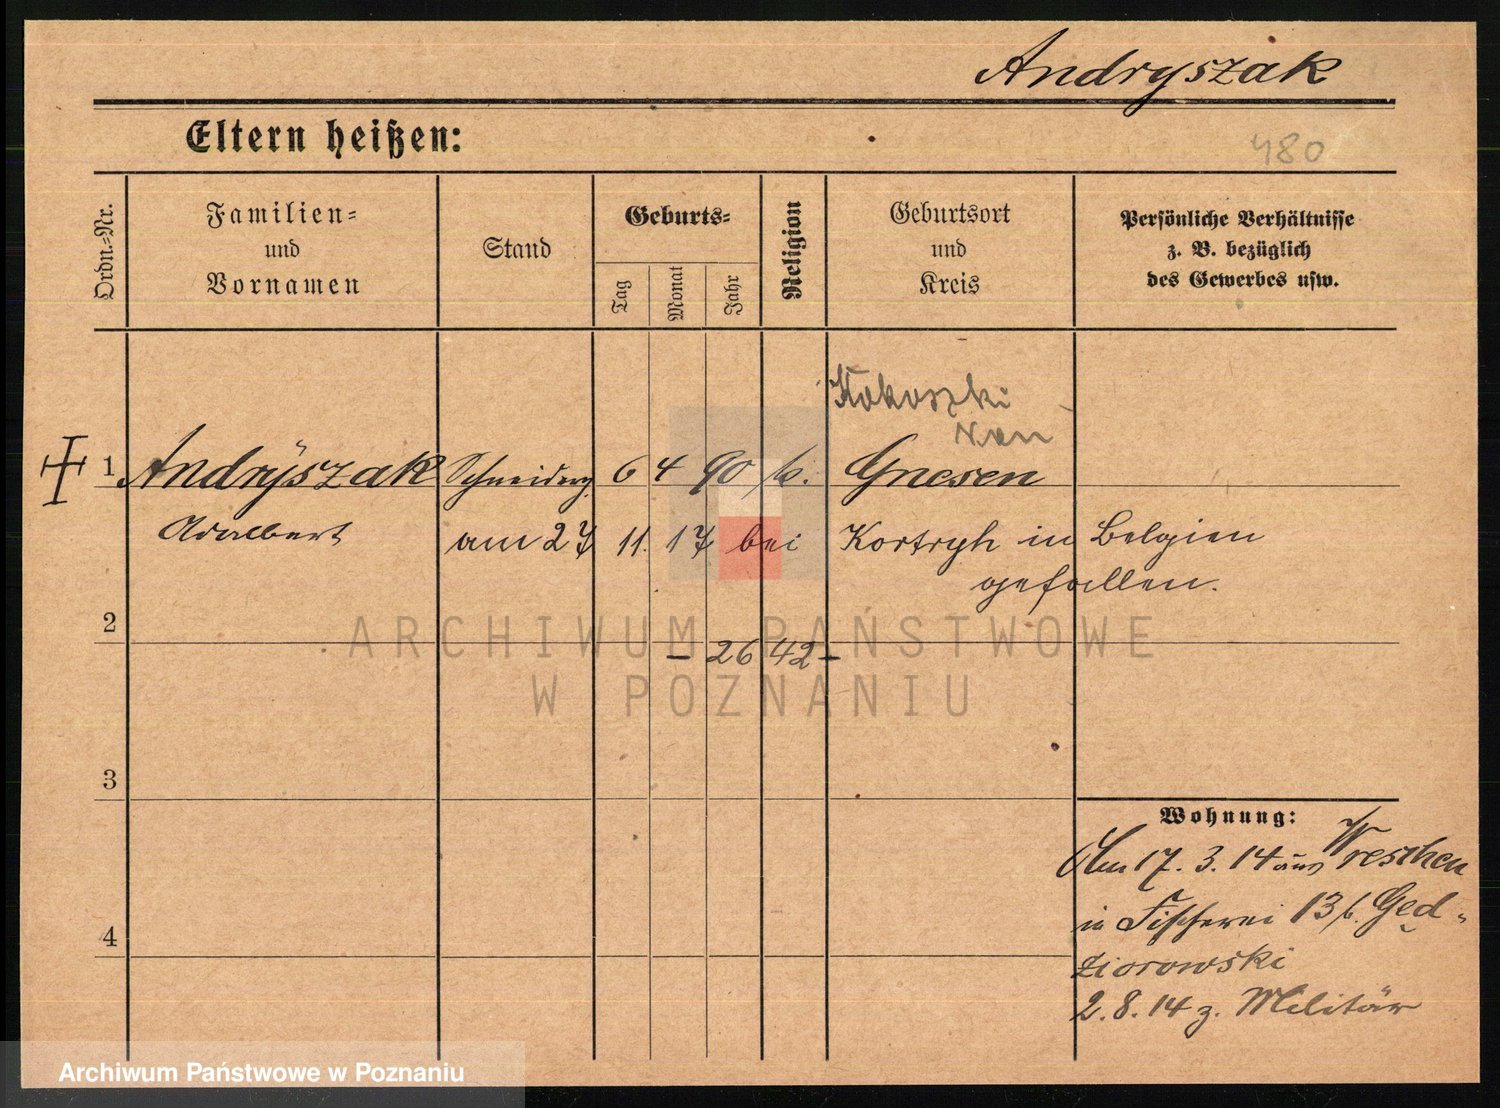 Andryszak
Eltern heißen:
480
Ordn.=Nr.
Familien=
und
Vornamen
Stand
Geburts=
Tag
Monat
Jahr
Religion
Geburtsort
und
Kreis
Persönliche Verhältnisse
z. B. bezüglich
des Gewerbes usw.
Kokoszki
1 Andrÿszak Schneiderg. 6 4 90 k. Gnesen
Adalbert am 27 11. 17 bei Kortryh in Belgien
gefallen.
2
– 2642 –
3
Wohnung:
Am 17. 3. 14 aus Wreschen
in Fischerei 13 b. Gęd-
ziorowski
2. 8. 14 z. Militär
4
ARCHIWUM PAŃSTWOWE
W POZNANIU
Archiwum Państwowe w Poznaniu